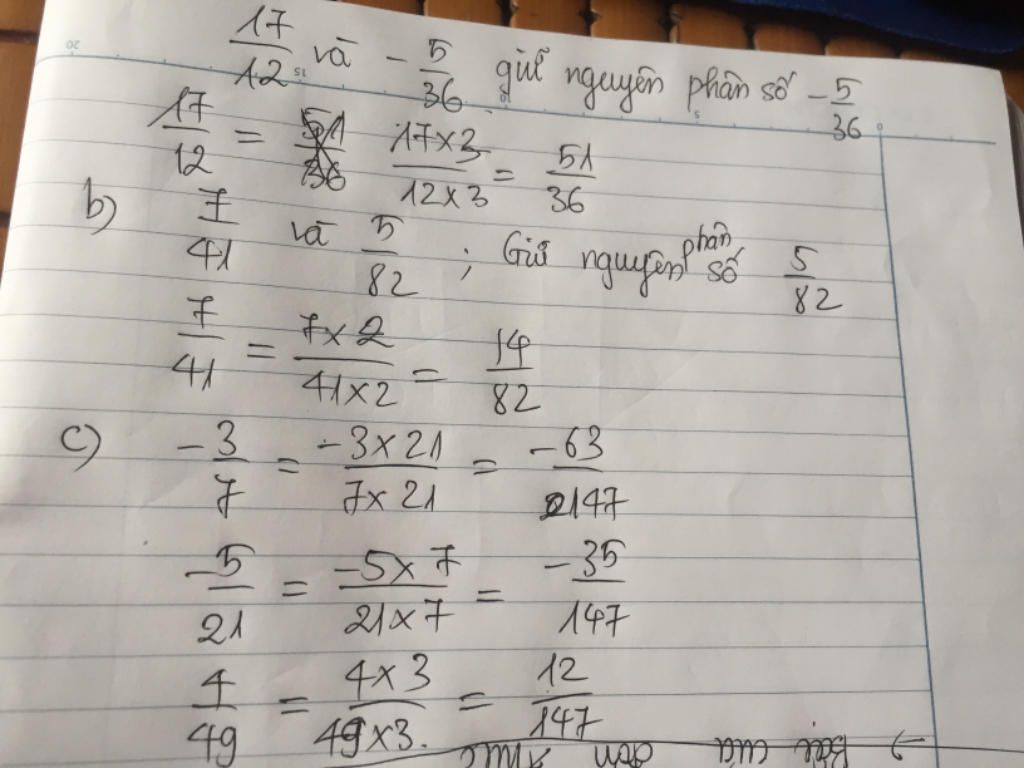 17/12 và - 5/36 giữ nguyên phân số - 5/36
17/12 = 17x3/12x3 = 51/36
b) 7/41 và 5/82 ; Giữ nguyên phân số 5/82
7/41 = 7x2/41x2 = 14/82
c) -3/7 = -3x21/7x21 = -63/147
-5/21 = -5x7/21x7 = -35/147
4/49 = 4x3/49x3. = 12/147